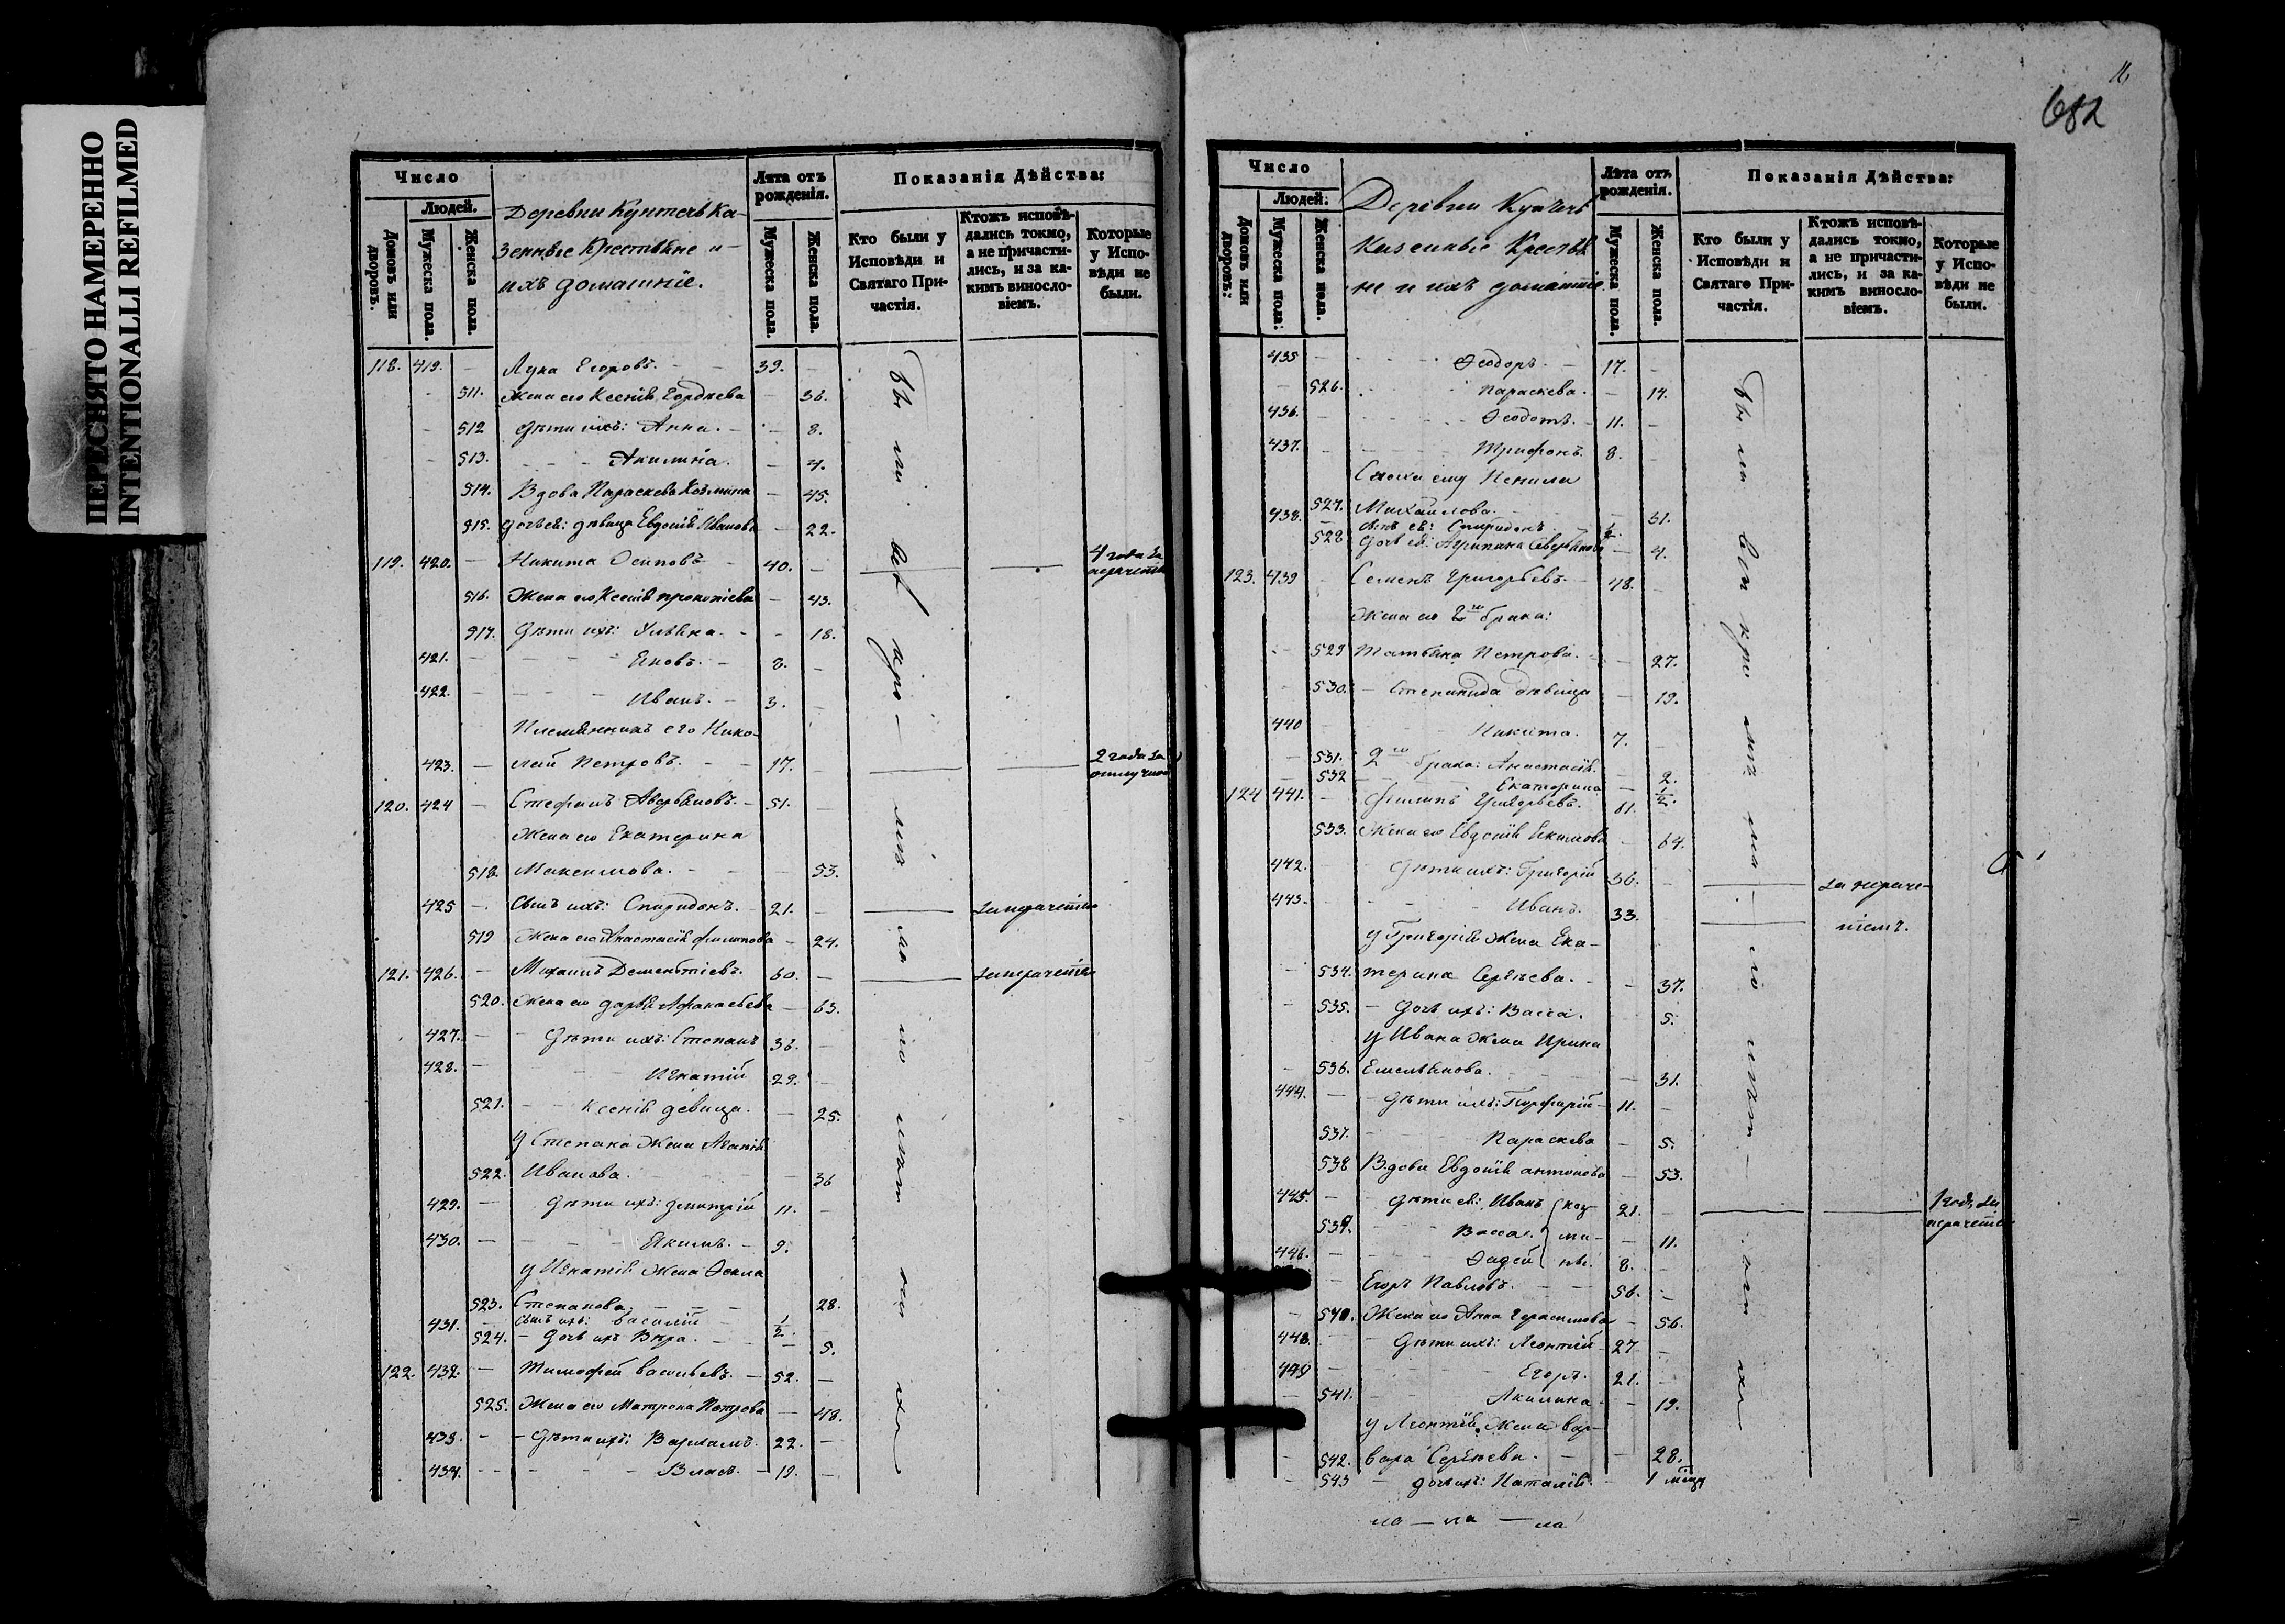 ПЕРЕСНЯТО НАМЕРЕННО
INTENTIONALLI REFILMED
Число
Людей.
Домовъ или дворовъ.
Мужеска пола.
Женска пола.
Деревни Ка-
зенные Крестьяне и
ихъ домашніе.
Лѣта отъ рожденія.
Мужеска пола.
Женска пола.
Показанія Дѣйства:
Кто были у Исповѣди и Святаго При-частія.
Ктожъ исповѣ-дались токмо, а не причасти-лись, и за ка-кимъ винословіемъ.
Которые у Испо-вѣди не были.
118. 419. — Лука Егоровъ. — 39. —
511. Жена его Ксенія Гордѣева — 36.
512 дѣти ихъ: Анна. — 8.
513. Акилина. — 4.
514. Вдова Параскева Козмина — 45.
515. дочь ея: дѣвица Евдокія Иванова — 22.
119. 420. — Никита Осиповъ — 40. — 4 года за нераченіем
516. Жена его Ксенія Прокопіева — 43.
517. Дѣти ихъ: Ульяна. — 18.
421. — Яковъ. — 8. —
422. — Иванъ. — 3. —
Племянникъ его Нико-
423. — лай Петровъ. — 17. — 2 года за отлучкою
120. 424 — Стефанъ Аверьяновъ. — 51. —
Жена его Екатерина
518. Максимова. — 53.
425 — Сынъ ихъ: Спиридонъ. — 21. — за нераченіем
519 Жена его Анастасія Филипова — 24.
121. 426. — Михаилъ Дементіевъ. 60. — за нераченіем
520. Жена его Дарья Афанасьева — 63.
427. — Дѣти ихъ: Степанъ 36. —
428. — Игнатій 29. —
521. — Ксенія девица. — 25.
У Степана жена Агапія
522. Иванова. — 36
429. — Дѣти ихъ: Димитрій 11. —
430. — Якимъ. — 9.
У Игнатія жена Фекла
523. Степанова. — 28.
431. — сынъ ихъ: Василій — ½.
524. — Дочь ихъ Вѣра. — 5.
122. 432. — Тимофей Васильевъ. — 52. —
525. Жена его Матрона Петрова — 48.
433. — Дѣти ихъ: Варламъ. 22. —
434. — Власъ. — 19. —
Бы ли всѣ кро — мѣ ма ло лѣт ны хъ
16
682
Число
Людей.
Домовъ или дворовъ.
Мужеска пола.
Женска пола.
Деревни
Казенные Крестья
не и ихъ домашніе.
Лѣта отъ рожденія.
Мужеска пола.
Женска пола.
Показанія Дѣйства:
Кто были у Исповѣди и Святаго При-частія.
Ктожъ исповѣ-дались токмо, а не причасти-лись, и за ка-кимъ винословіемъ.
Которые у Испо-вѣди не были.
435 — Ѳеодоръ. — 17. —
526. Параскева. — 14.
436. — Ѳеодотъ. — 11. —
437. — Трифонъ. 8. —
Сноха ему
527. Михаилова. — 31.
438. — сынъ ея: Спиридонъ — ½.
528 дочь ея: Агрипина Северьянова — 4.
123. 439 Семенъ Григорьевъ. — 48. —
Жена его 2го брака:
529 Татьяна Петрова. — 27.
530. — Степанида дѣвица — 19.
440 Никита. 7. —
531. 2го брака: Анастасія. — 2.
532 Екатерина — ½.
124 441. — Филипъ Григорьевъ. 61. —
533. Жена его Евдокія Екимова — 64.
442. — Дѣти ихъ: Григорій 36. — за нераче-
443. — Иванъ. 33. ніемъ.
У Григорія жена Ека-
534. терина Сергѣева. — 37.
535. — Дочь ихъ: Васса. 5.
У Ивана жена Ирина
536. Емельянова. — 31.
444. — Дѣти ихъ: Порфирій — 11. —
537. Параскева — 5.
538 Вдова Евдокія Антонова — 53.
445. — Дѣти ея: Иванъ 21. — 1 годъ за нераченіем
539. Васса. — 11.
446. — Фадей 8. —
— Егоръ Павловъ. — 56. —
540. Жена его Анна Герасимова — 56.
448. — Дѣти ихъ: Леонтій — 27 —
449 — Егоръ. 21. —
541. Акилина — 19.
У Леонтія жена Вар-
542. вара Сергѣева. — 28.
543 — дочь ихъ: Наталія. — 1 мѣсяцъ
Бы ли всѣ кро мѣ ма ло лѣт — ны хъ